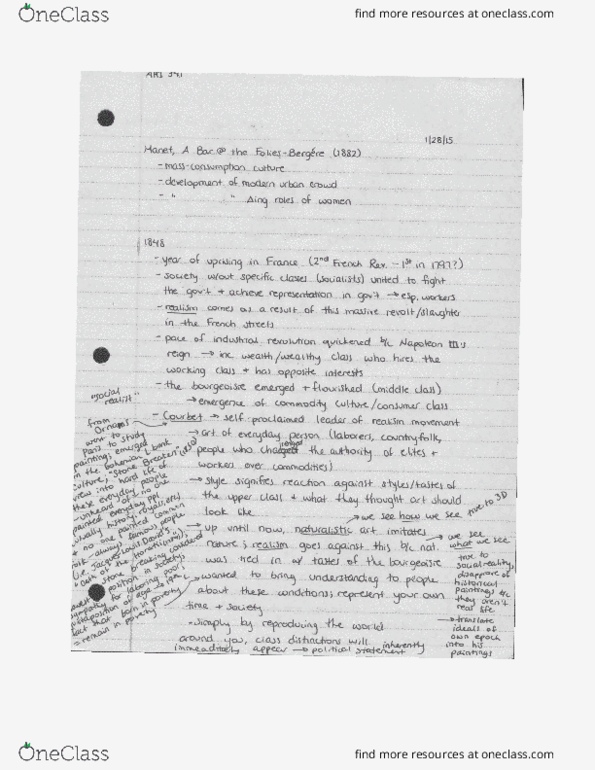 OneClass
find more resources at oneclass.com
1/28/15
Manet, A Bar @ the Folies-Bergére (1882)
- mass-consumption culture
- development of modern urban crowd
- " " Δing roles of women
1848
- year of uprising in France (2nd French Rev. - 1st in 1797?)
- society w/out specific classes (socialists) united to fight
the gov't + achieve representation in gov't → esp. workers
- realism comes as a result of this massive revolt/slaughter
in the French streets
- pace of industrial revolution quickened b/c Napoleon III's
reign → inc wealth/wealthy class who hires the
working class + has opposite interests
- the bourgeoisie emerged + flourished (middle class)
→ emergence of commodity culture/consumer class
- Courbet → self-proclaimed leader of realism movement
→ art of everyday person (laborers, country-folk,
people who the authority of elites +
worked over commodities)
→ style signifies reaction against styles/tastes of
the upper class + what they thought art should
look like
→ we see how we see true to 3D
→ up until now, naturalistic art imitates
nature; realism goes against this b/c nat.
was tied in w/ tastes of the bourgeoisie
→ wanted to bring understanding to people
about these conditions; represent your own
time + society
- simply by reproducing the world
around you, class distinctions will inherently
immediately appear → political statement
"social
realist"
from
Ornans
went to
Paris to study
painting; emerged
in the bohemian
culture; "Stone Breakers"
view into hard life of
these everyday people
- unheard of; no one
painted everyday ppl
usually history, royals, etc
+ no one painted common
folk - always famous people
(i.e. Jacques-Louis David's
stone breaking considered
position in society;
sympathy for laboring poor
juxtaposition of age →
fact that born in poverty
= remain in poverty
→ we see
what we see
true to
social reality,
disapprove of
historical
paintings b/c
they aren't
real life
→ translate
ideals of
own epoch
into his
paintings
OneClass
find more resources at oneclass.com